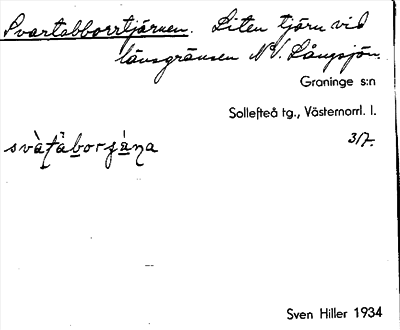 Svartabborrtjärnen. Liten tjärn vid
länsgränsen NV. Långsjön.
Graninge s:n
Sollefteå tg., Västernorrl. l.
svàtaborjána
3/7.
Sven Hiller 1934